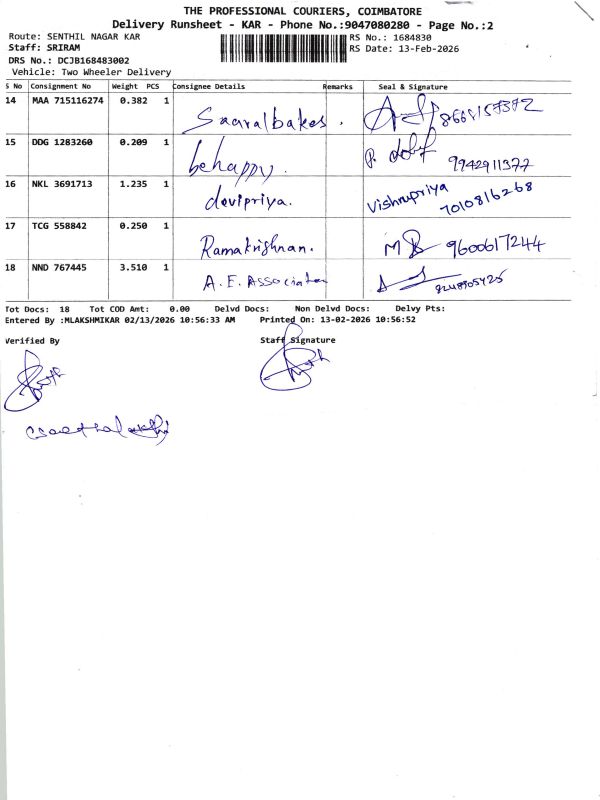 THE PROFESSIONAL COURIERS, COIMBATORE
No.:
Delivery Runsheet - KAR - Phone No.:9047080280 - Page No.:2
Route: SENTHIL NAGAR KAR
RS No.: 1684830
Staff: SRIRAM
RS Date: 13-Feb-2026
DRS No.: DCJB168483002
Vehicle: Two Wheeler Delivery
S No Consignment No Weight PCS Consignee Details Remarks Seal & Signature
14 MAA 715116274 0.382 1 Saaralbakes.
15 DDG 1283260 0.209 1 behappy. 9942911377
16 NKL 3691713 1.235 1 devipriya. Vishnupriya 7010816268
17 TCG 558842 0.250 1 Ramakrishnan. 9600617244
18 NND 767445 3.510 1 A.E. Associates
Tot Docs: 18 Tot COD Amt: 0.00 Delvd Docs: Non Delvd Docs: Delvy Pts:
Entered By :MLAKSHMIKAR 02/13/2026 10:56:33 AM Printed On: 13-02-2026 10:56:52
Verified By Staff Signature